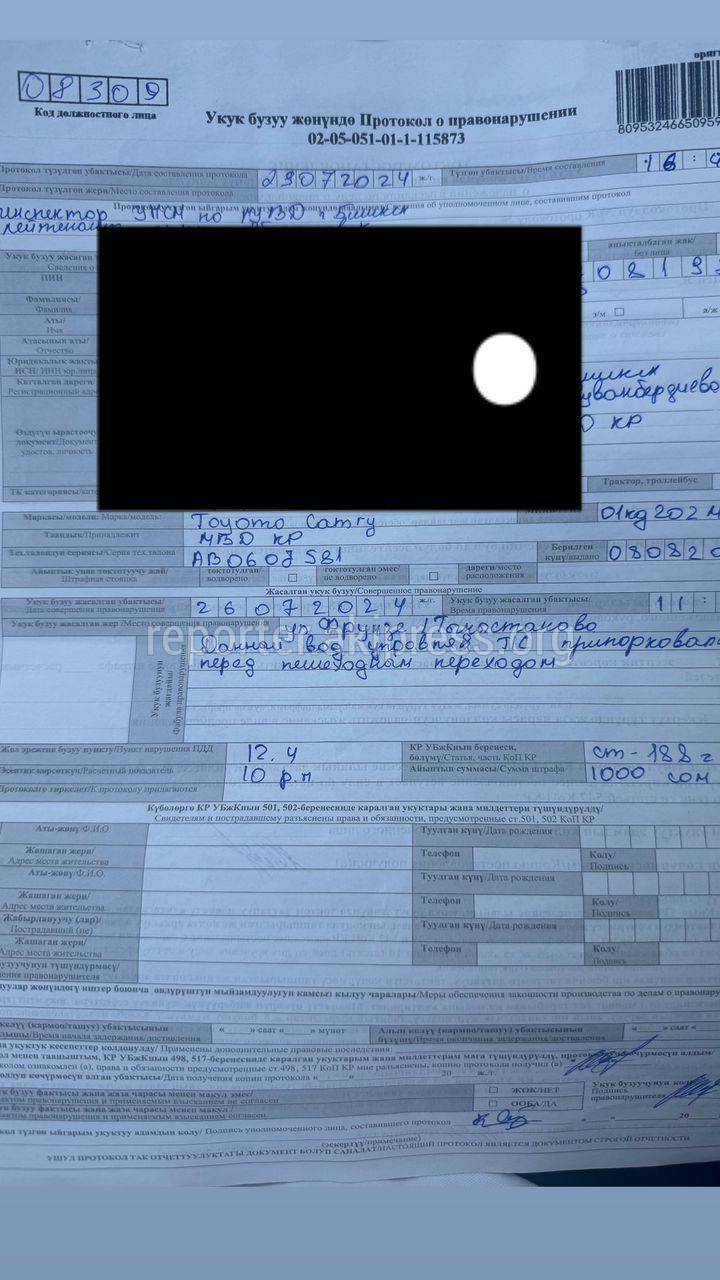 08309
Код должностного лица
Укук бузуу жөнүндө Протокол о правонарушении
02-05-051-01-1-115873
8095324665095
Протокол түзүлгөн убактысы/Дата составления протокола 29072024 ж/г. Түзгөн убактысы/Время составления 16:
Протокол түзүлгөн жери/Место составления протокола
инспектор УПСМ по ГУВД г. Бишкек
лейтенант
аныкталбаган жак/
без лица
Укук бузуу жасаган
Сведения о
ПИН 0819
Фамилиясы/
Фамилия
э/м
а/ж
Аты/
Имя
Атасынын аты/
Отчество
Юридикалык жактын
ИСН/ИНН юр.лица
Катталган дареги/
Регистрационный адрес
КР
Өздүгүн ырастоочу
документ/Документ
удостов. личность
Трактор, троллейбус
ТК категориясы/
Маркасы/модели: Марка/модель: Toyota Camry 01кg202
Таандык/Принадлежит МВД КР
Тех.талондун сериясы/Серия тех.талона AB0607581 Берилген
күнү/выдано 08082
Айыптык унаа токтотуучу жай/
Штрафная стоянка
токтотулган/
водворено
токтотулган эмес/
не водворено
дареги/место
расположения
Жасалган укук бузуу/Совершенное правонарушение
Укук бузуу жасалган убактысы/
Дата совершения правонарушения 26072024 ж/г. Укук бузуу жасалган убактысы/
Время правонарушения 11:
Укук бузуу жасалган жер/Место совершения правонарушения ул Фрунзе/Тыныстанова
reporter.akipress.org
Укук бузуунун
жагдайы/
Фабула правонарушения
Данный вод управляя ТС припарковал
перед пешеходным переходом
Жол эрежеин бузуу пункту/Пункт нарушения ПДД 12.4 КР УБжКнын беренеси,
бөлүмү/Статья, часть КоП КР ст-188 г
Эсептик көрсөткүч/Расчетный показатель 10 р.п Айыптын суммасы/Сумма штрафа 1000 сом
Протоколго тиркелет/К протоколу прилагаются
Күбөлөргө КР УБжКнын 501, 502-беренесинде каралган укуктары жана милдеттери түшүндүрүлдү/
Свидетелям и пострадавшему разъяснены права и обязанности, предусмотренные ст.501, 502 КоП КР
Аты-жөнү/Ф.И.О. Туулган күнү/Дата рождения
Жашаган жери/
Адрес места жительства
Телефон Колу/
Подпись
Аты-жөнү/Ф.И.О. Туулган күнү/Дата рождения
Жашаган жери/
Адрес места жительства
Телефон Колу/
Подпись
Жабырлануучу (лар)/
Пострадавший (не) Туулган күнү/Дата рождения
Жашаган жери/
Адрес места жительства
Телефон Колу/
Подпись
правонарушителя
жөнүндөгү иштер боюнча өндүрүштүн мыйзамдуулугун камсыз кылуу чаралары/Меры обеспечения законности производства по делам о
келүү (кармоо/ташуу) убактысынын
Время начала задержания/доставления
« » саат « » мүнөт
Алып келүү (кармоо/ташуу) убактысынын
бүтүшү/Время окончания задержания/доставления
« » саат «
Применены дополнительные правовые последствия:
менен тааныштым, КР УБжКнын 498, 517-беренесинде каралган укуктарым жана милдеттерим мага түшүндүрүлдү,
ознакомлен (а), права и обязанности предусмотренные ст.498, 517 КоП КР мне разъяснены, копию протокола получил (а)
көчүрмөсүн алган убактысы/Дата получения копии протокола « » 20 ж/г.
бузуу фактысы жана жаза чарасы менен макул эмес/
фактом правонарушения и применяемым взысканием не согласен
ЖОК/НЕТ
бузуу фактысы жана жаза чарасы менен макул/
фактом правонарушения и применяемым взысканием согласен
ООБА/ДА
Подпись
правонарушителя
түзгөн ыйгарым укуктуу адамдын колу/ Подпись уполномоченного лица, составившего протокол
« » 20
(эскертүү/примечание)
УШУЛ ПРОТОКОЛ ТАК ОТЧЕТТУУЛУКТАГЫ ДОКУМЕНТ БОЛУП САНАЛАТ/НАСТОЯЩИЙ ПРОТОКОЛ ЯВЛЯЕТСЯ ДОКУМЕНТОМ СТРОГОЙ ОТЧЕТНОСТИ